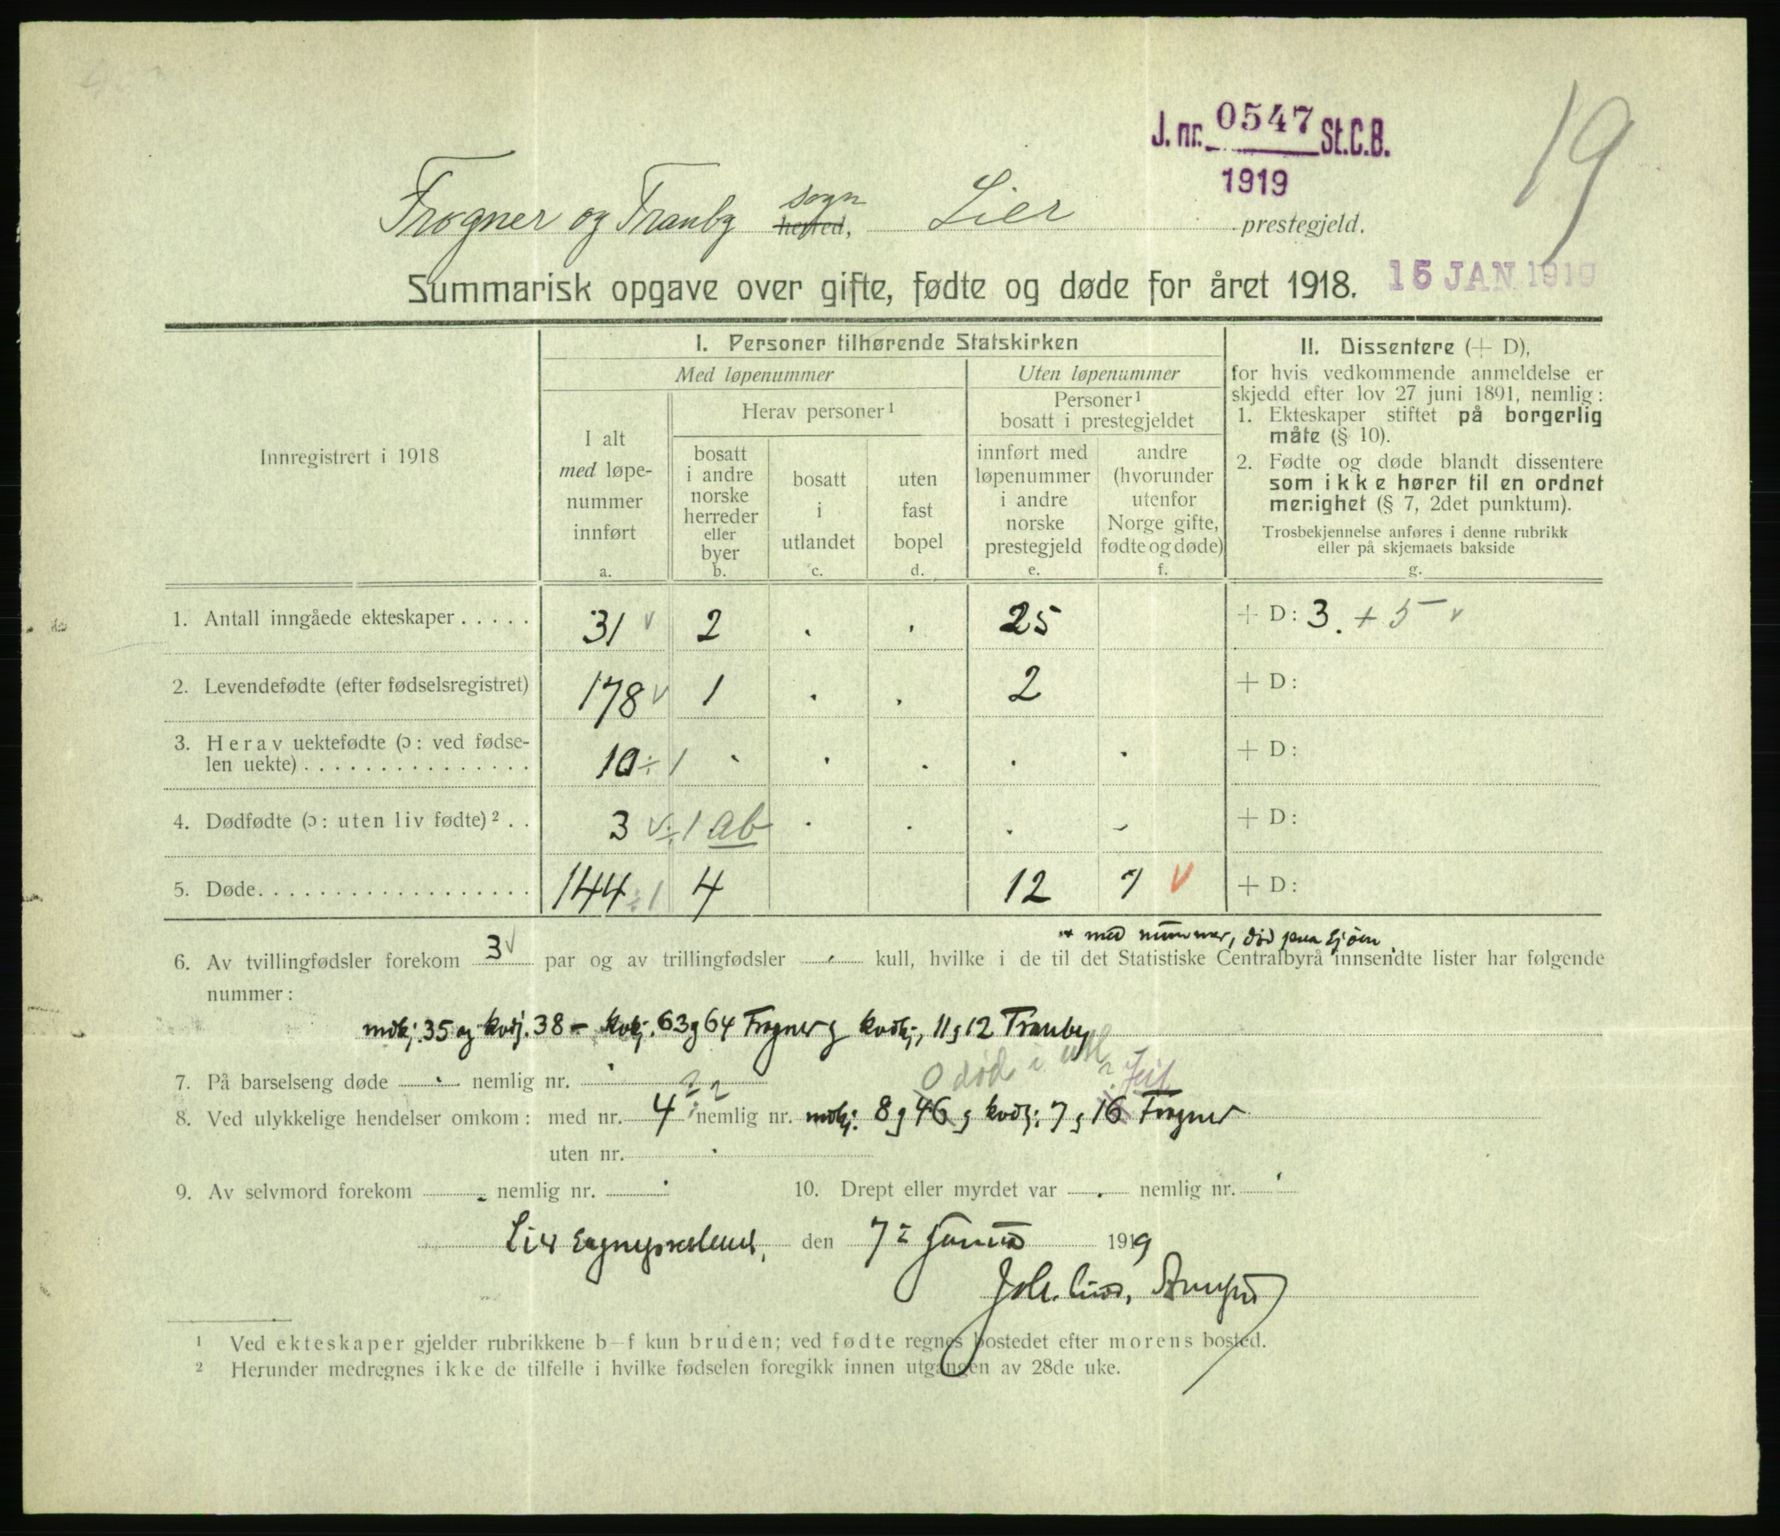 J. nr. 0547 St.C.B.
1919
19
Frogner og Tranby sogn herred, Lier prestegjeld.
Summarisk opgave over gifte, fødte og døde for året 1918.
15 JAN 1919
Innregistrert i 1918
I. Personer tilhørende Statskirken
Med løpenummer
Uten løpenummer
I alt
med løpe-
nummer
innført
a.
Herav personer ¹
bosatt
i andre
norske
herreder
eller
byer
b.
bosatt
i
utlandet
c.
uten
fast
bopel
d.
Personer ¹
bosatt i prestegjeldet
innført med
løpenummer
i andre
norske
prestegjeld
e.
andre
(hvorunder
utenfor
Norge gifte,
fødte og døde)
f.
II. Dissentere (+ D),
for hvis vedkommende anmeldelse er
skjedd efter lov 27 juni 1891, nemlig:
1. Ekteskaper stiftet på borgerlig
måte (§ 10).
2. Fødte og døde blandt dissentere
som ikke hører til en ordnet
menighet (§ 7, 2det punktum).
Trosbekjennelse anføres i denne rubrikk
eller på skjemaets bakside
g.
1. Antall inngåede ekteskaper . . . . . 31 v 2 . . 25 + D: 3. + 5 v
2. Levendefødte (efter fødselsregistret) 178 v 1 . . 2 + D:
3. Herav uektefødte (ɔ: ved fødse-
len uekte) . . . . . . . . . . . . . . . 10 ÷ 1 . . . . . + D:
4. Dødfødte (ɔ: uten liv fødte) ² . . 3 v ÷ 1 ab . . . - + D:
5. Døde. . . . . . . . . . . . . . . . . . 144 ÷ 1 4 12 7 v + D:
med nummer, død paa Sjøen.
6. Av tvillingfødsler forekom 3 v par og av trillingfødsler . kull, hvilke i de til det Statistiske Centralbyrå innsendte lister har følgende
nummer:
mdkj. 35 og kvdj. 38 - kvkj. 63 g 64 Frogner g kvdkj, 11 g 12 Tranby
7. På barselseng døde . nemlig nr. .
0 død i utl ? Feil
8. Ved ulykkelige hendelser omkom: med nr. 4 ÷ 2 nemlig nr. mdkj: 8 g 46 g kvdkj: 7 g 16 Frogner
uten nr. .
9. Av selvmord forekom - nemlig nr. .
10. Drept eller myrdet var . nemlig nr. .
Lier Sognepresteemb., den 7de Januar 1919
Joh.
¹ Ved ekteskaper gjelder rubrikkene b-f kun bruden; ved fødte regnes bostedet efter morens bosted.
² Herunder medregnes ikke de tilfelle i hvilke fødselen foregikk innen utgangen av 28de uke.